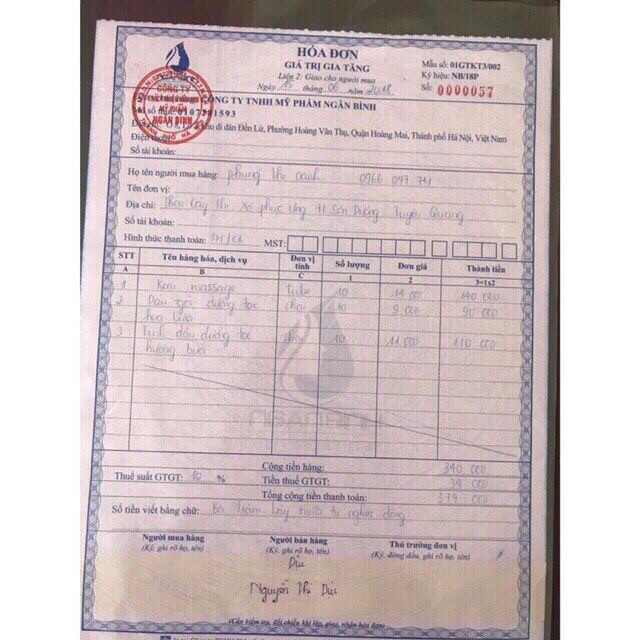 HÓA ĐƠN
GIÁ TRỊ GIA TĂNG
Liên 2: Giao cho người mua
Ngày 15 tháng 06 năm 2018
Mẫu số: 01GTKT3/002
Ký hiệu: NB/18P
Số: 0000057
CÔNG TY
MỸ PHẨM
NGÂN BÌNH
CÔNG TY TNHH MỸ PHẨM NGÂN BÌNH
Mã số thuế: 0107281593
khu di dân Đền Lừ, Phường Hoàng Văn Thụ, Quận Hoàng Mai, Thành phố Hà Nội, Việt Nam
Điện thoại:
Số tài khoản:
Họ tên người mua hàng: phùng thị oanh 0966 097 741
Tên đơn vị:
Địa chỉ: Thôn Cây Thị xã phúc ứng H Sơn Dương Tuyên Quang
Số tài khoản:
Hình thức thanh toán: TM/CK MST:
STT Tên hàng hóa, dịch vụ Đơn vị tính Số lượng Đơn giá Thành tiền
A B C 1 2 3=1x2
1 Kem massage Tuýp 10 14 000 140 000
2 Dầu gội dưỡng tóc chai 10 9 000 90 000
hoa bưởi
3 Tinh dầu dưỡng tóc chai 10 11 000 110 000
hương bưởi
Cộng tiền hàng: 340 000
Thuế suất GTGT: 10 % Tiền thuế GTGT: 34 000
Tổng cộng tiền thanh toán: 374 000
Số tiền viết bằng chữ: Ba trăm bảy mươi tư nghìn đồng
Người mua hàng Người bán hàng Thủ trưởng đơn vị
(Ký, ghi rõ họ, tên) (Ký, ghi rõ họ, tên) (Ký, đóng dấu, ghi rõ họ, tên)
Dịu
Nguyễn Thị Dịu
(Cần kiểm tra, đối chiếu khi lập, giao, nhận hóa đơn)